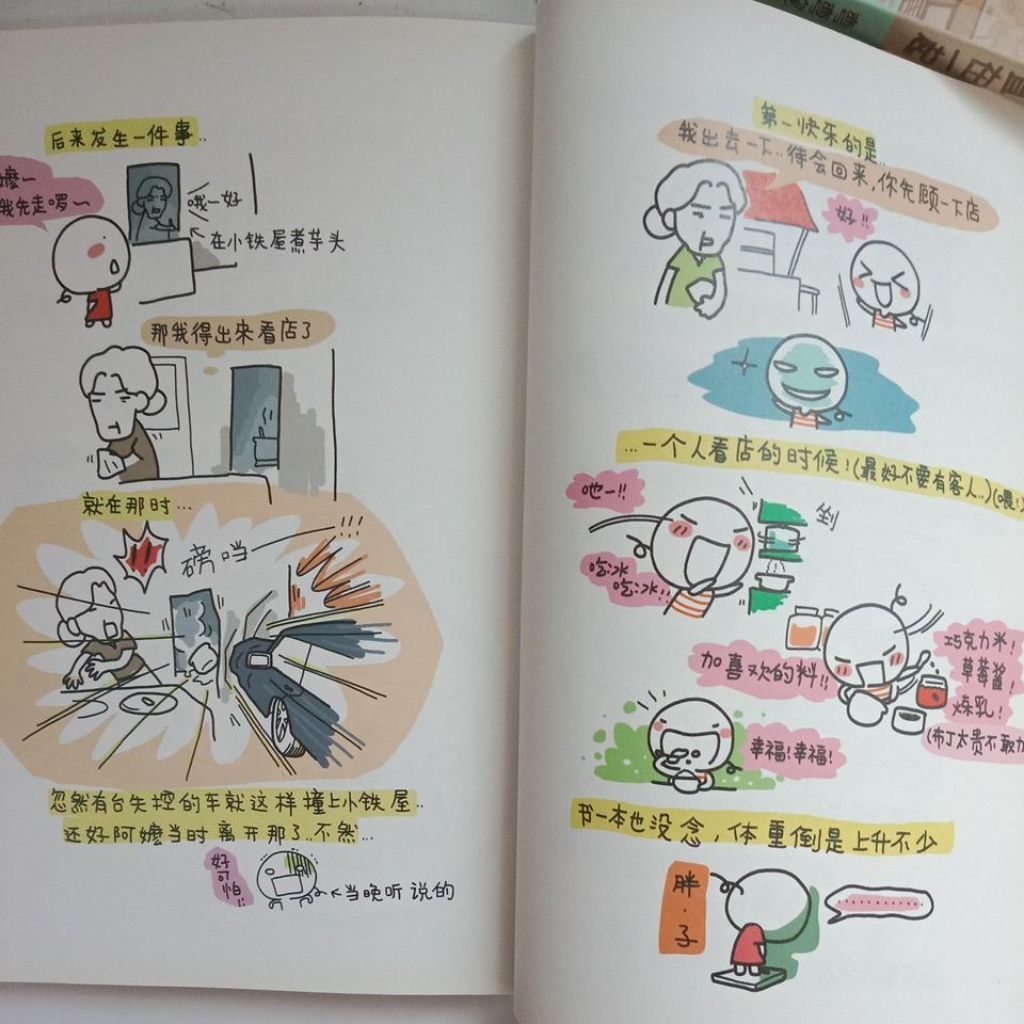 后来发生一件事..
嬷一
我先走啰～
哦一好
在小铁屋煮芋头
那我得出来看店了
就在那时...
磅当
忽然有台失控的车就这样撞上小铁屋..
还好阿嬷当时离开那了..不然...
好可怕!!
当晚听说的
第一快乐的是..
我出去一下..待会回来,你先顾一下店
好!!
...一个人看店的时候!(最好不要有客人..)(喂!
吔一!!
剉
吃冰
吃冰!!
加喜欢的料!!
巧克力米!
草莓酱!
炼乳!
(布丁太贵不敢加
幸福!幸福!
书一本也没念,体重倒是上升不少
胖·子